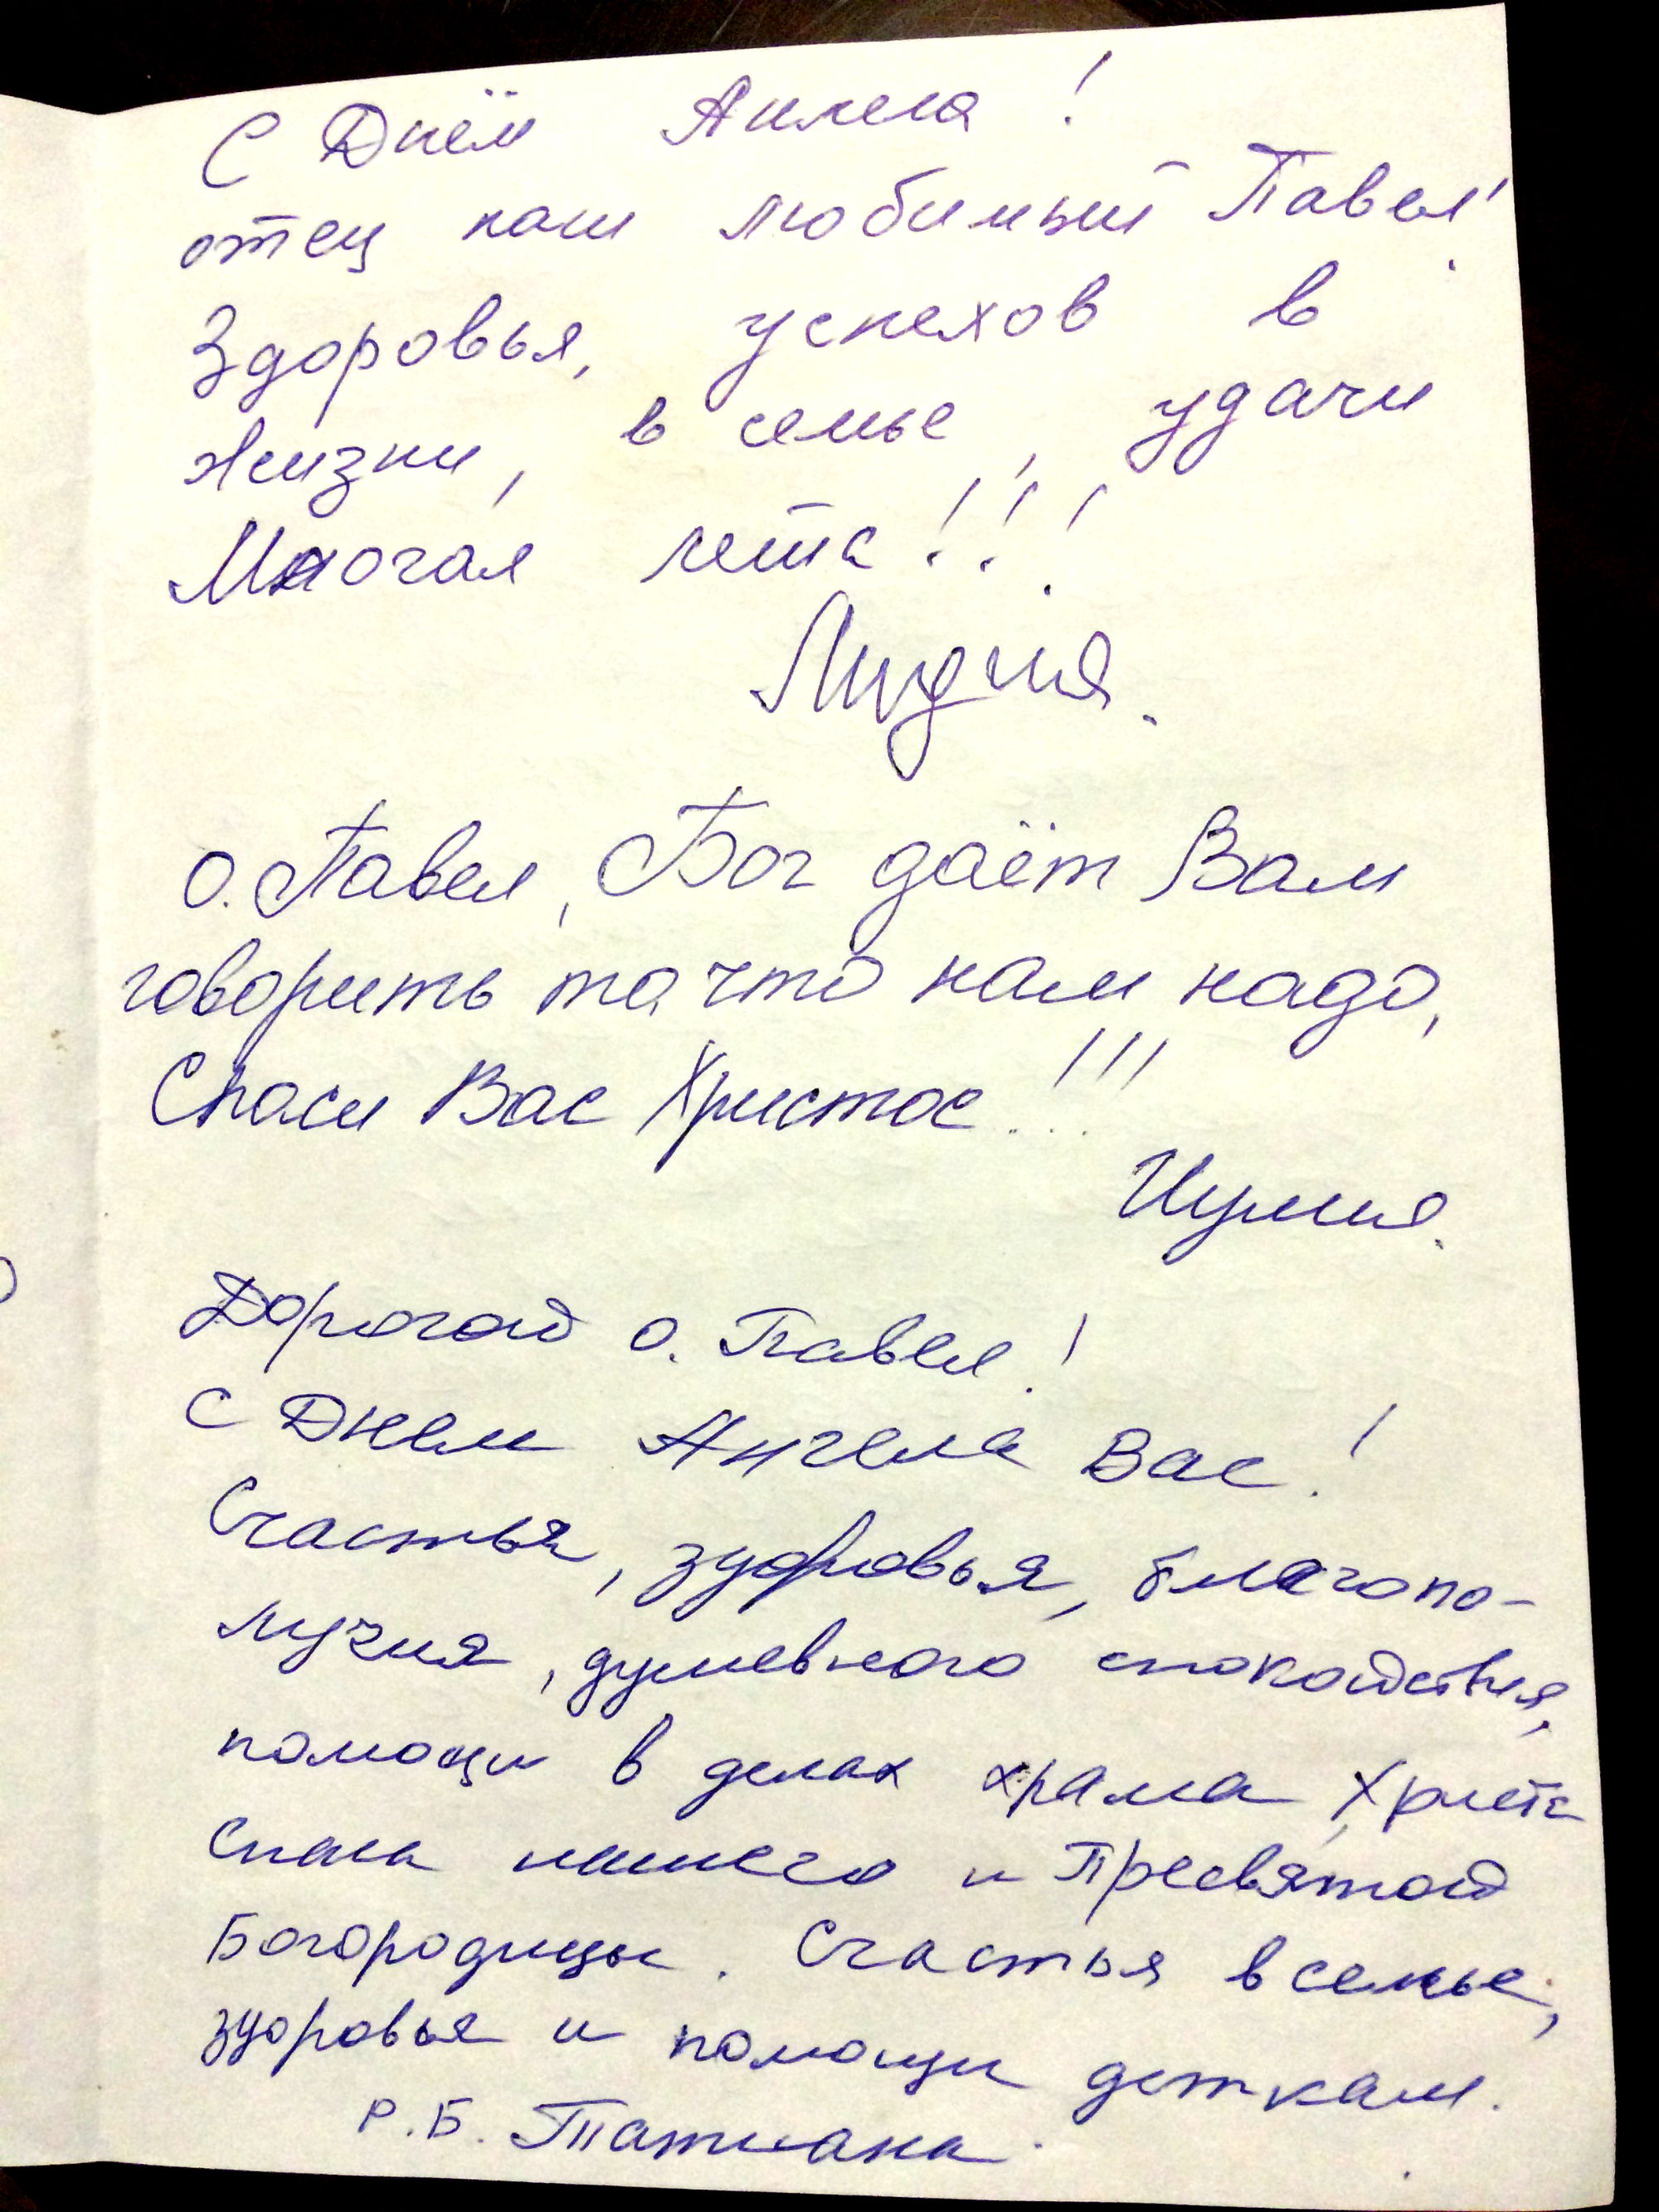 С Днём Ангела!
отец наш любимый Павел!
Здоровья, успехов в
жизни, в семье, удачи
Многая лета!!!
Лидия.
О. Павел, Бог даёт Вам
говорить то что нам надо,
Спаси Вас Христос!!!
Иулия.
Дорогой о. Павел!
С Днем Ангела Вас!
Счастья, здоровья, благопо-
лучия, душевного спокойствия,
помощи в делах храма, Христа
Спаса нашего и Пресвятой
Богородицы. Счастья в семье,
здоровья и помощи деткам.
Р.Б. Татиана.